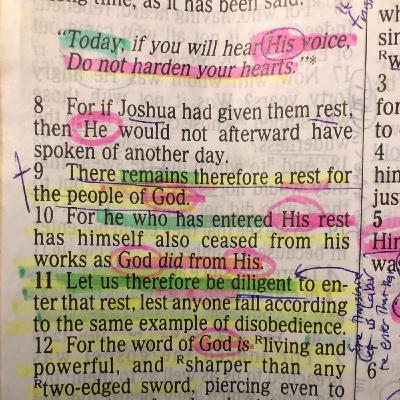 long time, as it has been said:
"Today, if you will hear His voice,
Do not harden your hearts."*
8 For if Joshua had given them rest,
then He would not afterward have
spoken of another day.
9 There remains therefore a rest for
the people of God.
10 For he who has entered His rest
has himself also ceased from his
works as God did from His.
11 Let us therefore be diligent to en-
ter that rest, lest anyone fall according
to the same example of disobedience.
12 For the word of God is Rliving and
powerful, and Rsharper than any
Rtwo-edged sword, piercing even to
wh
sin
3
for
to
4
him
just
5
Him
wa
6